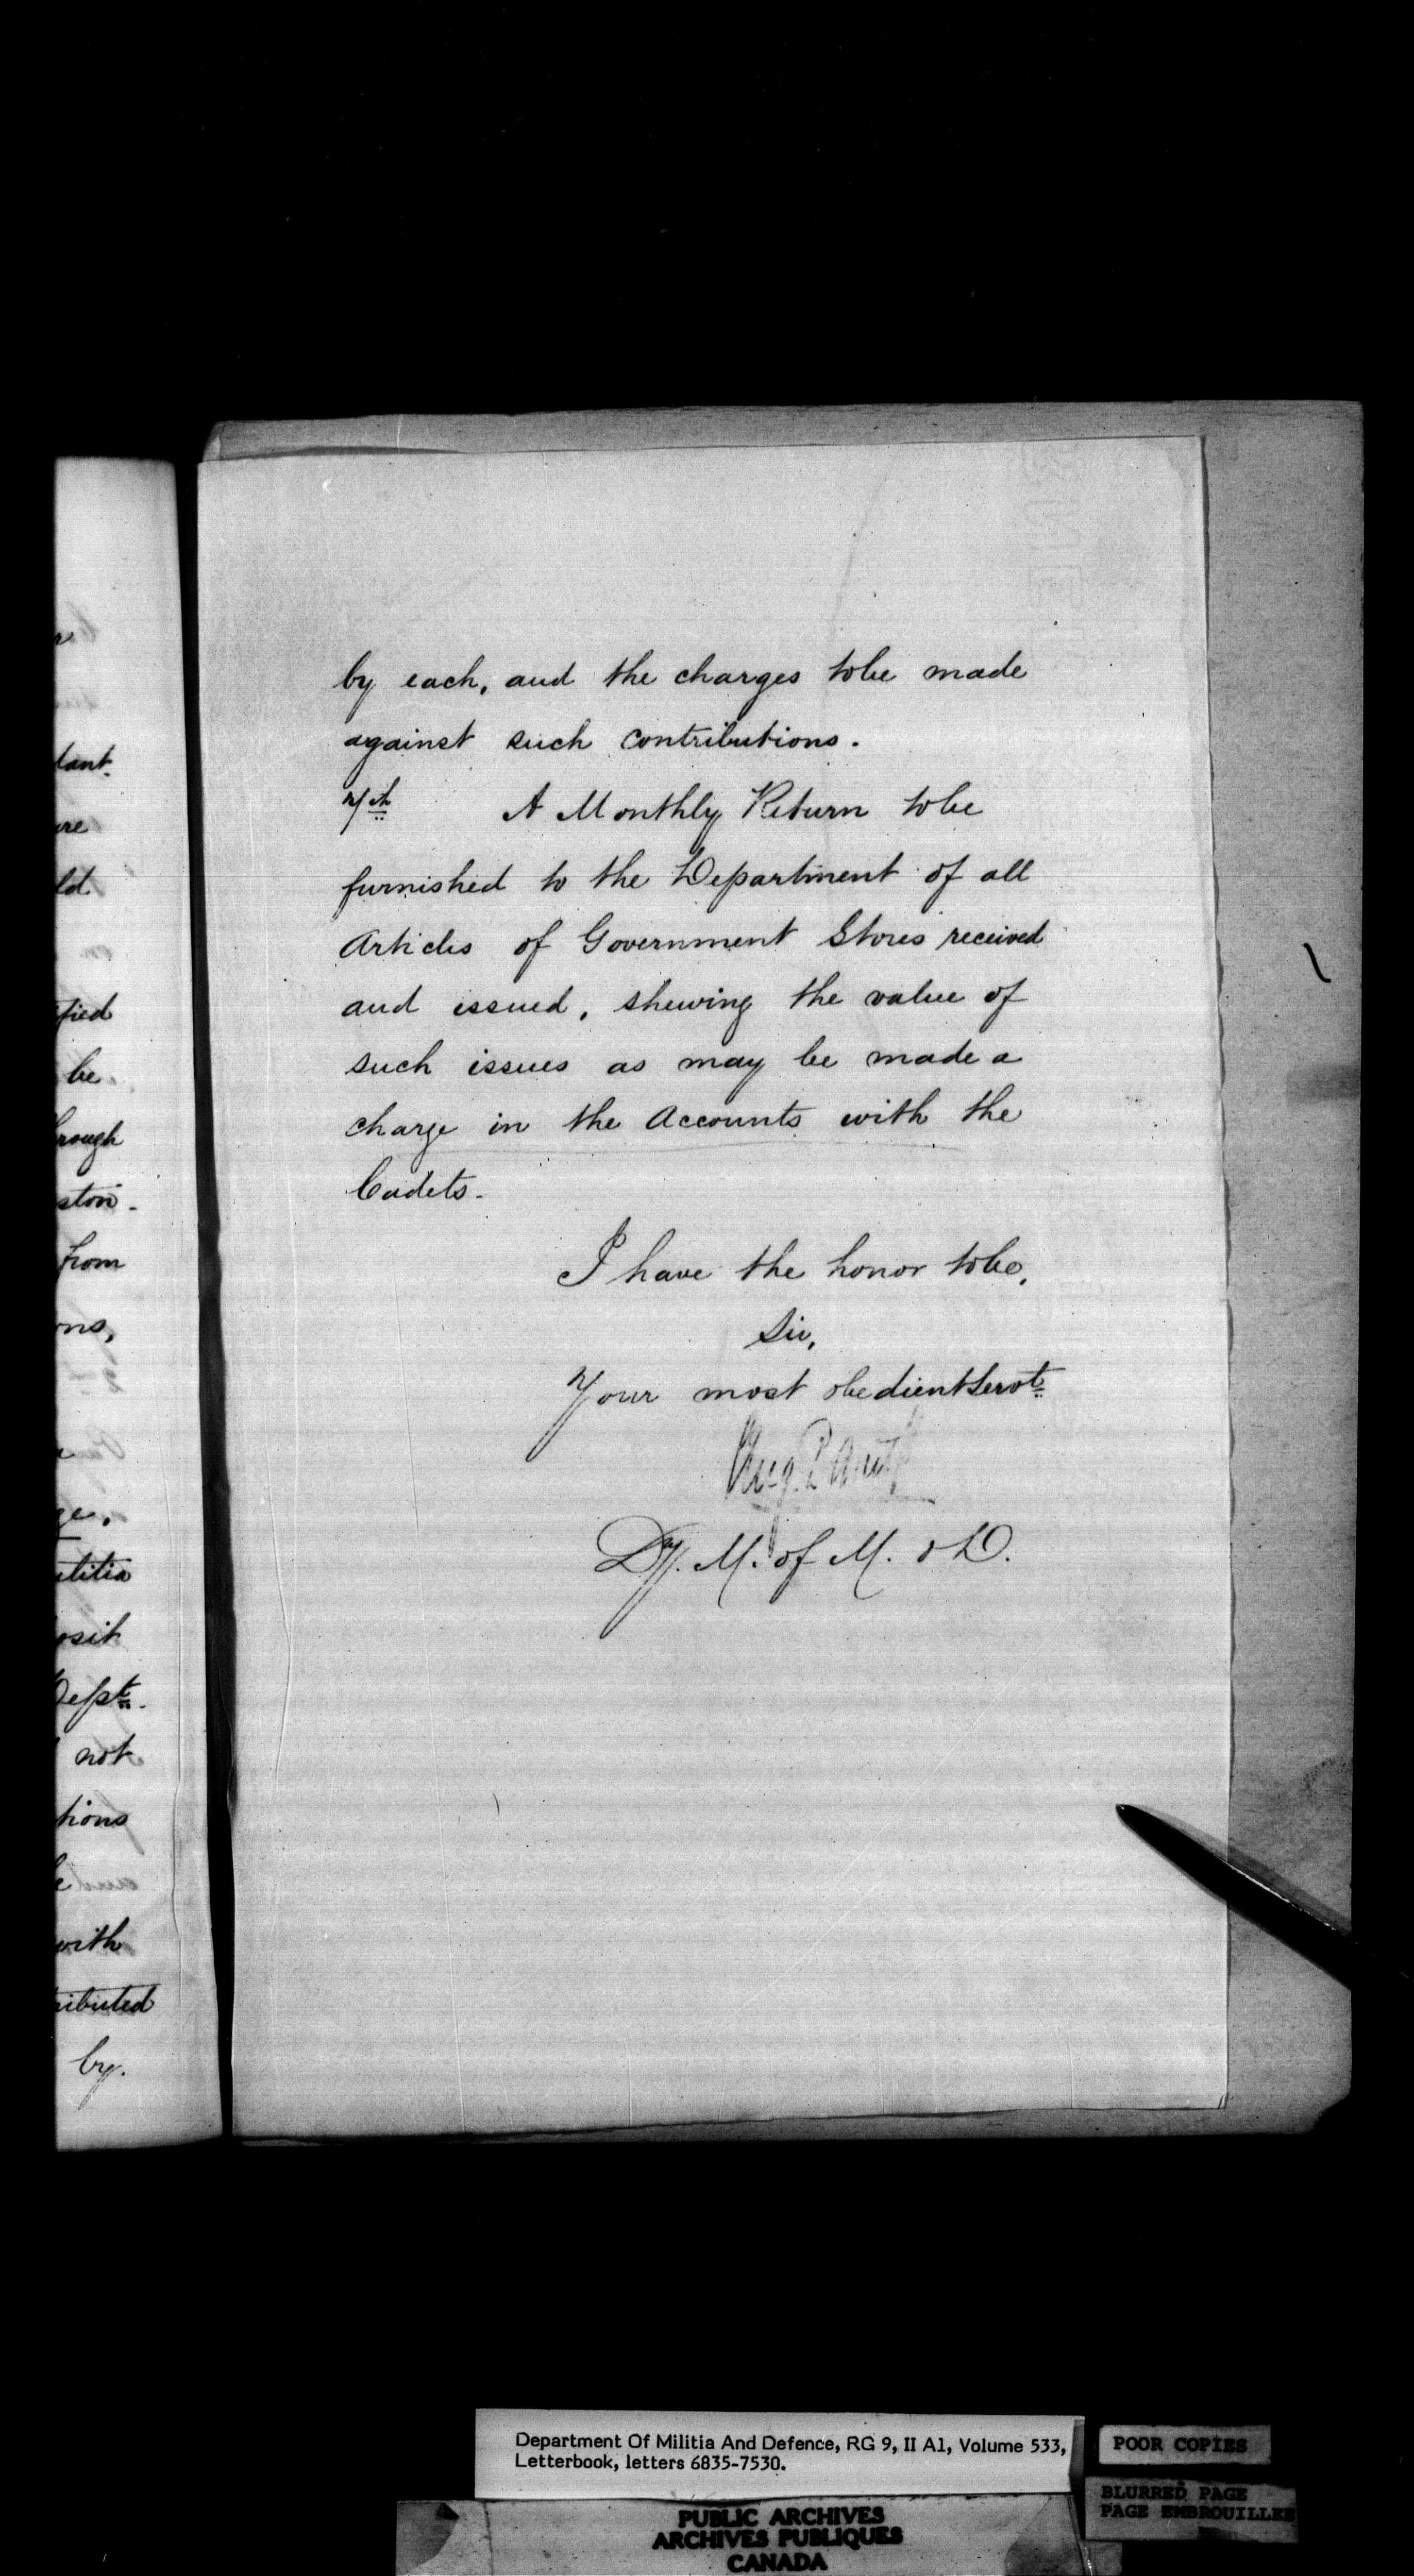 by each, and the charges tobe made
against such contributions.
7th A Monthly Return tobe
furnished to the Department of all
Articles of Government Stores received
and issued, shewing the value of
such issues as may be made a
charge in the Accounts with the
Cadets.
I have the honor tobe,
Sir,
Your most obedient Servt
Dy. M. of M. & D.
be
from
not
with
by.
Department Of Militia And Defence, RG 9, II A1, Volume 533,
Letterbook, letters 6835-7530.
POOR COPIES
BLURRED PAGE
PAGE EMBROUILLEE
PUBLIC ARCHIVES
ARCHIVES PUBLIQUES
CANADA